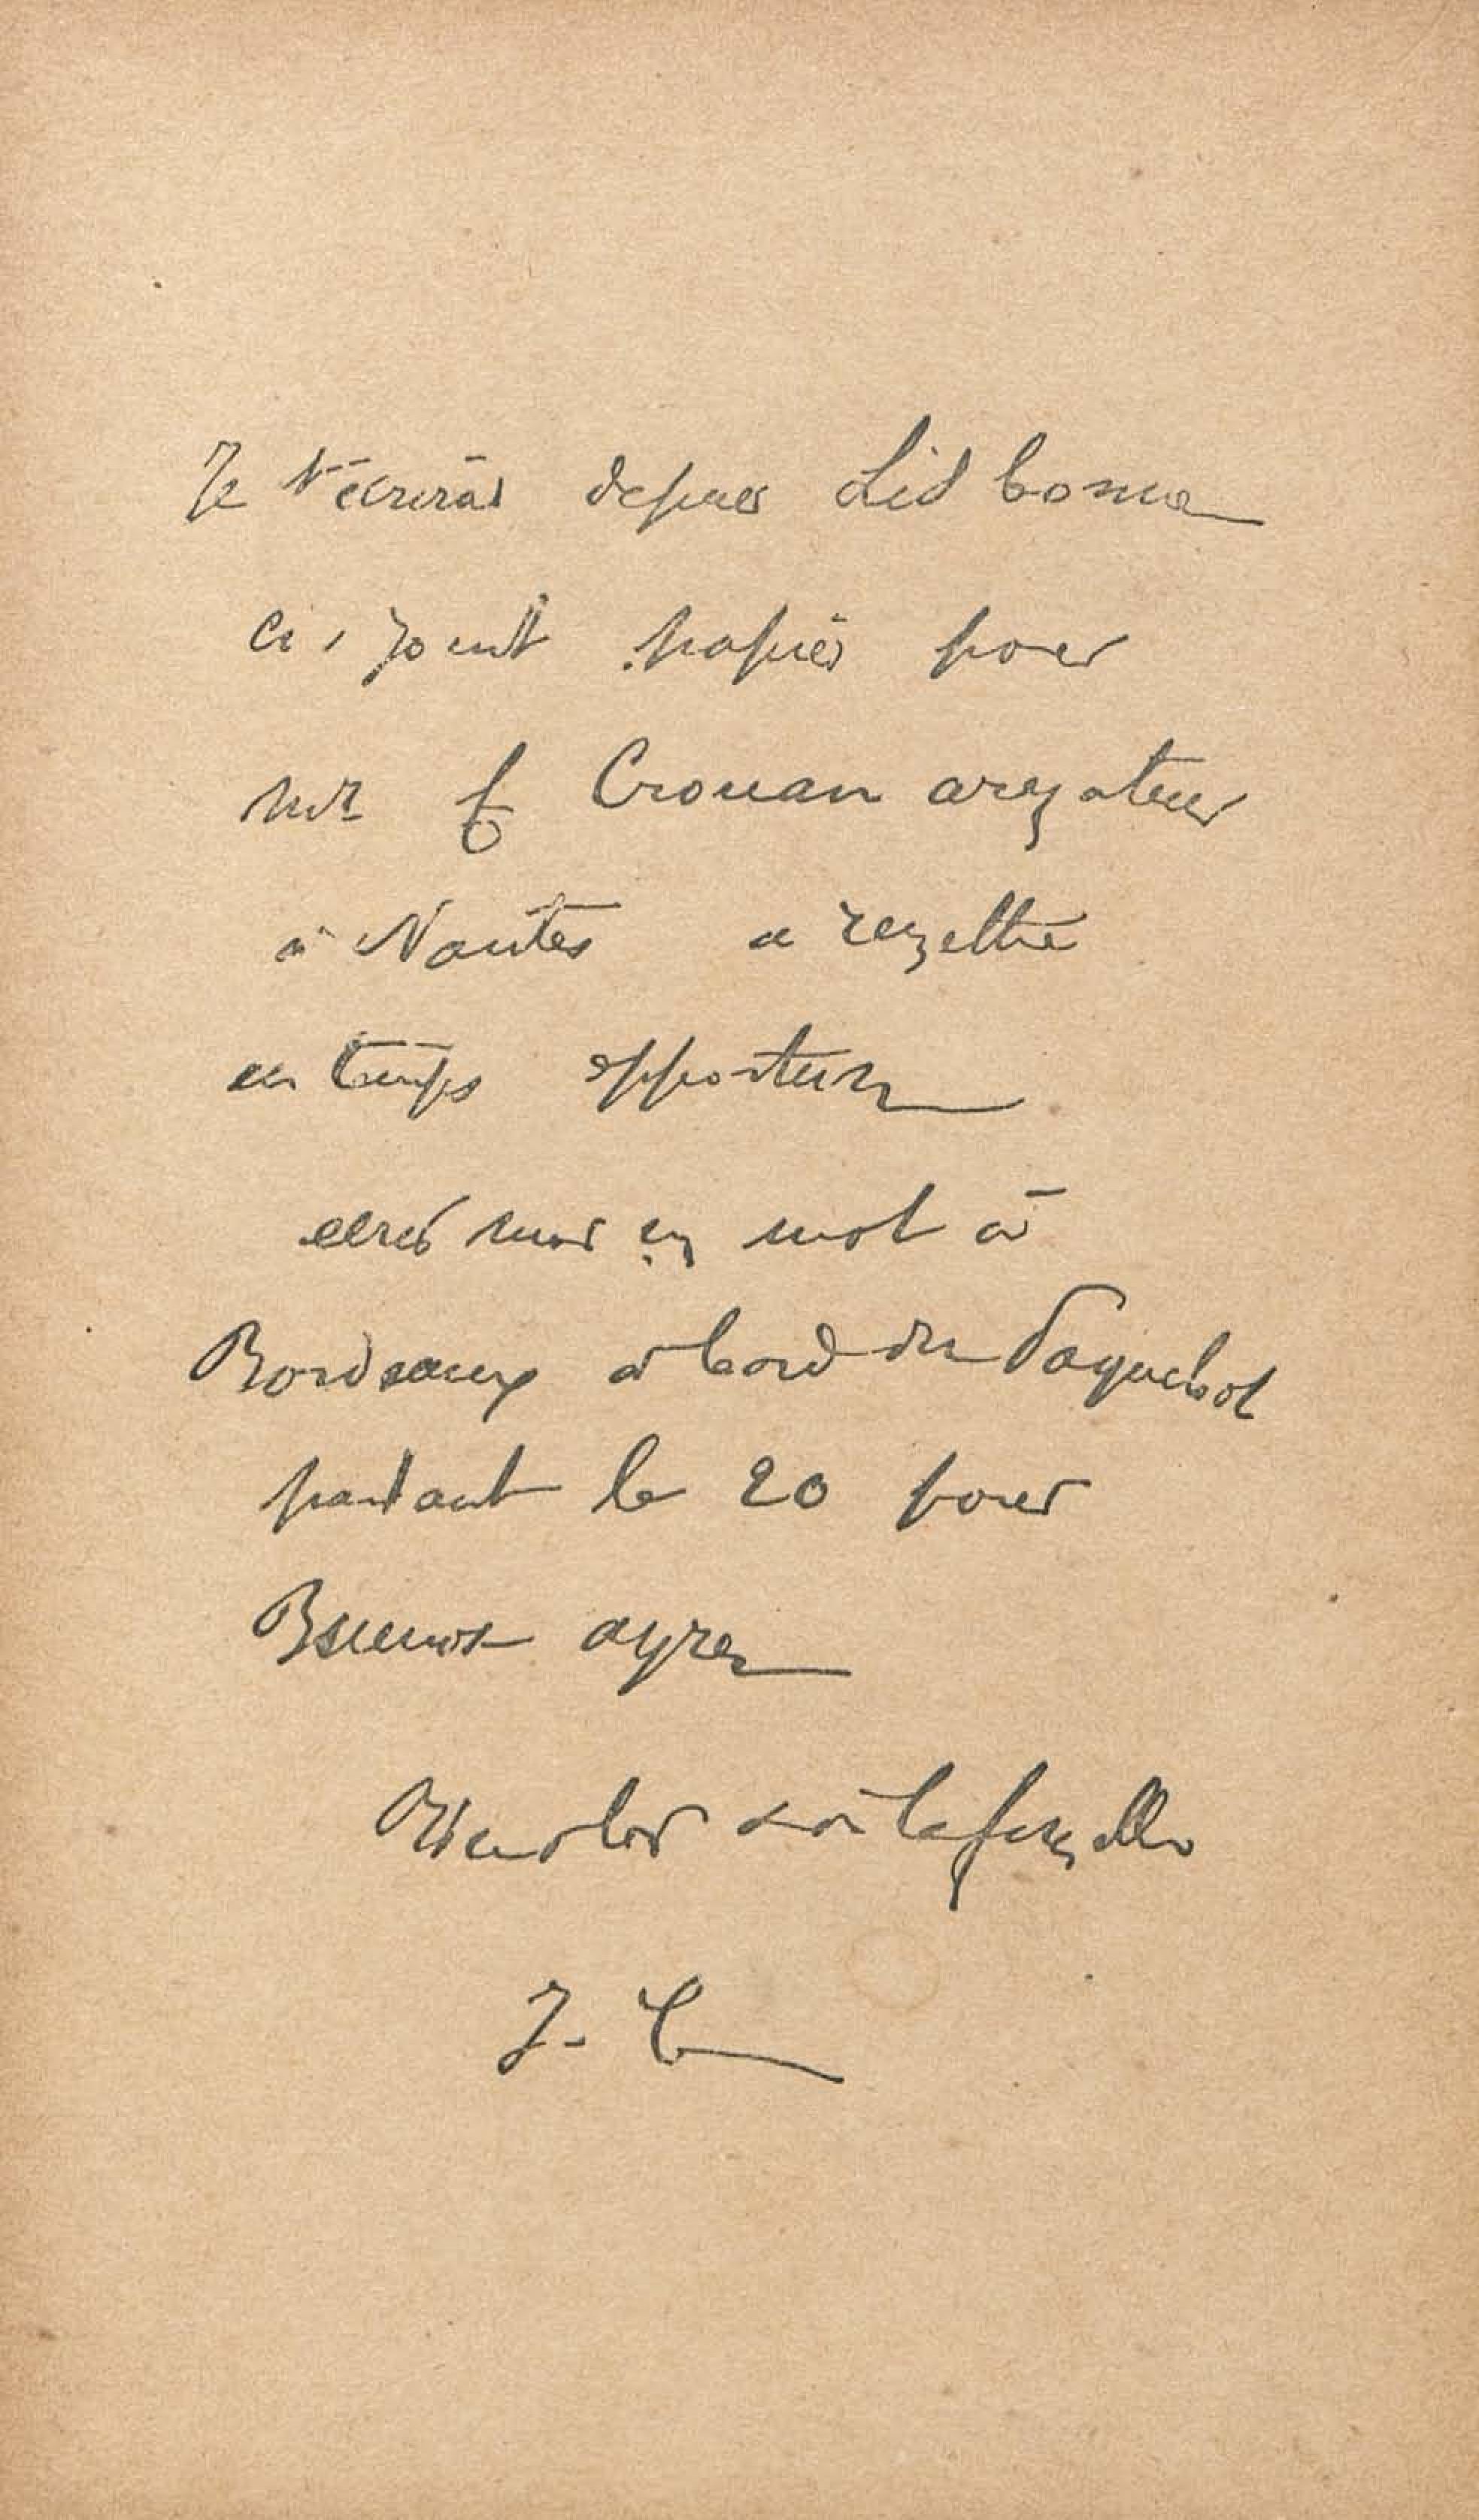 Je t'écrirai depuis Lisbonne
ci-joint papier pour
mr f Crouan armateur
à Nantes a remettre
en temps opportun
ecris moi un mot à
Bordeaux a bord du Paquebot
partant le 20 pour
Buenos ayres
la famille
J. C